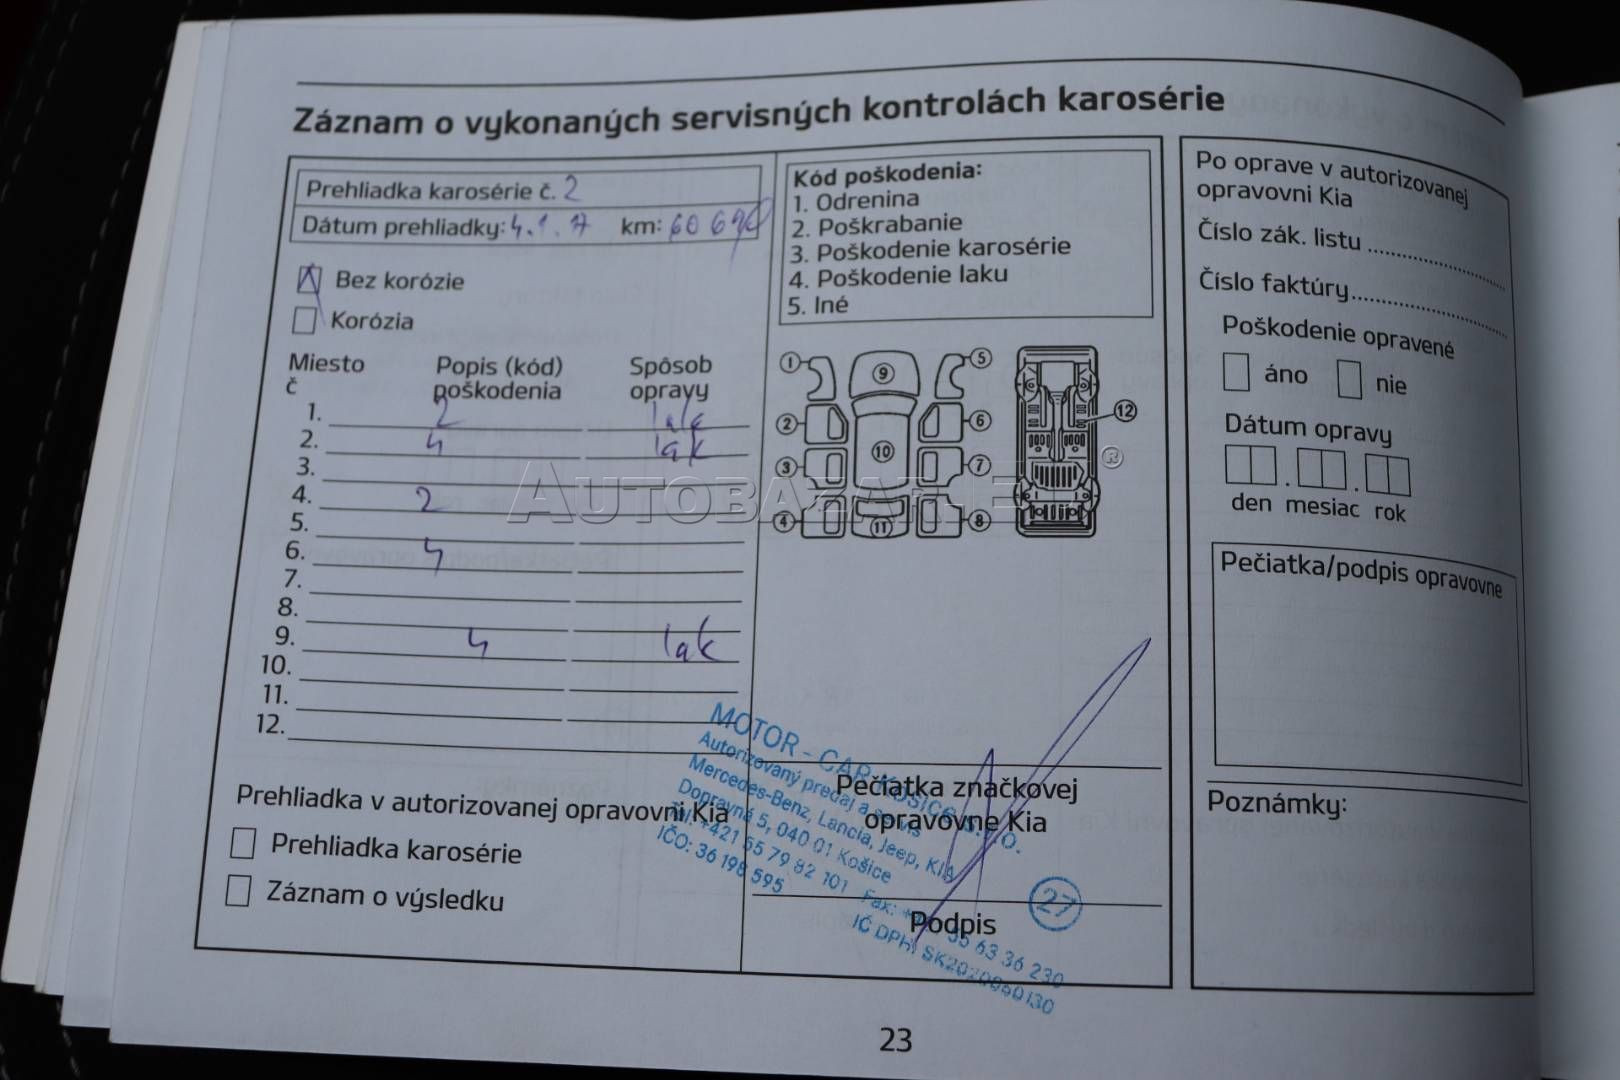 Záznam o vykonaných servisných kontrolách karosérie
Prehliadka karosérie č. 2
Dátum prehliadky: 4.1.17 km: 60 690
Bez korózie
Korózia
Miesto č Popis (kód) poškodenia Spôsob opravy
1. 2 lak
2. 4 lak
3.
4. 2
5.
6. 4
7.
8.
9. 4 lak
10.
11.
12.
Prehliadka v autorizovanej opravovni Kia
Prehliadka karosérie
Záznam o výsledku
Kód poškodenia:
1. Odrenina
2. Poškrabanie
3. Poškodenie karosérie
4. Poškodenie laku
5. Iné
1 9 5
2 10 6 12
3 7
4 11 8
AUTOBAZAR.E ®
Pečiatka značkovej
opravovne Kia
Podpis
MOTOR - CAR Košice s.r.o.
Autorizovaný predaj a servis
Mercedes-Benz, Lancia, Jeep, KIA
Dopravná 5, 040 01 Košice
Tel.: +421 55 79 82 101 Fax: +421 55 63 36 230
IČO: 36 198 595 IČ DPH: SK2020060130
27
Po oprave v autorizovanej
opravovni Kia
Číslo zák. listu
Číslo faktúry
Poškodenie opravené
áno nie
Dátum opravy
den mesiac rok
Pečiatka/podpis opravovne
Poznámky:
23